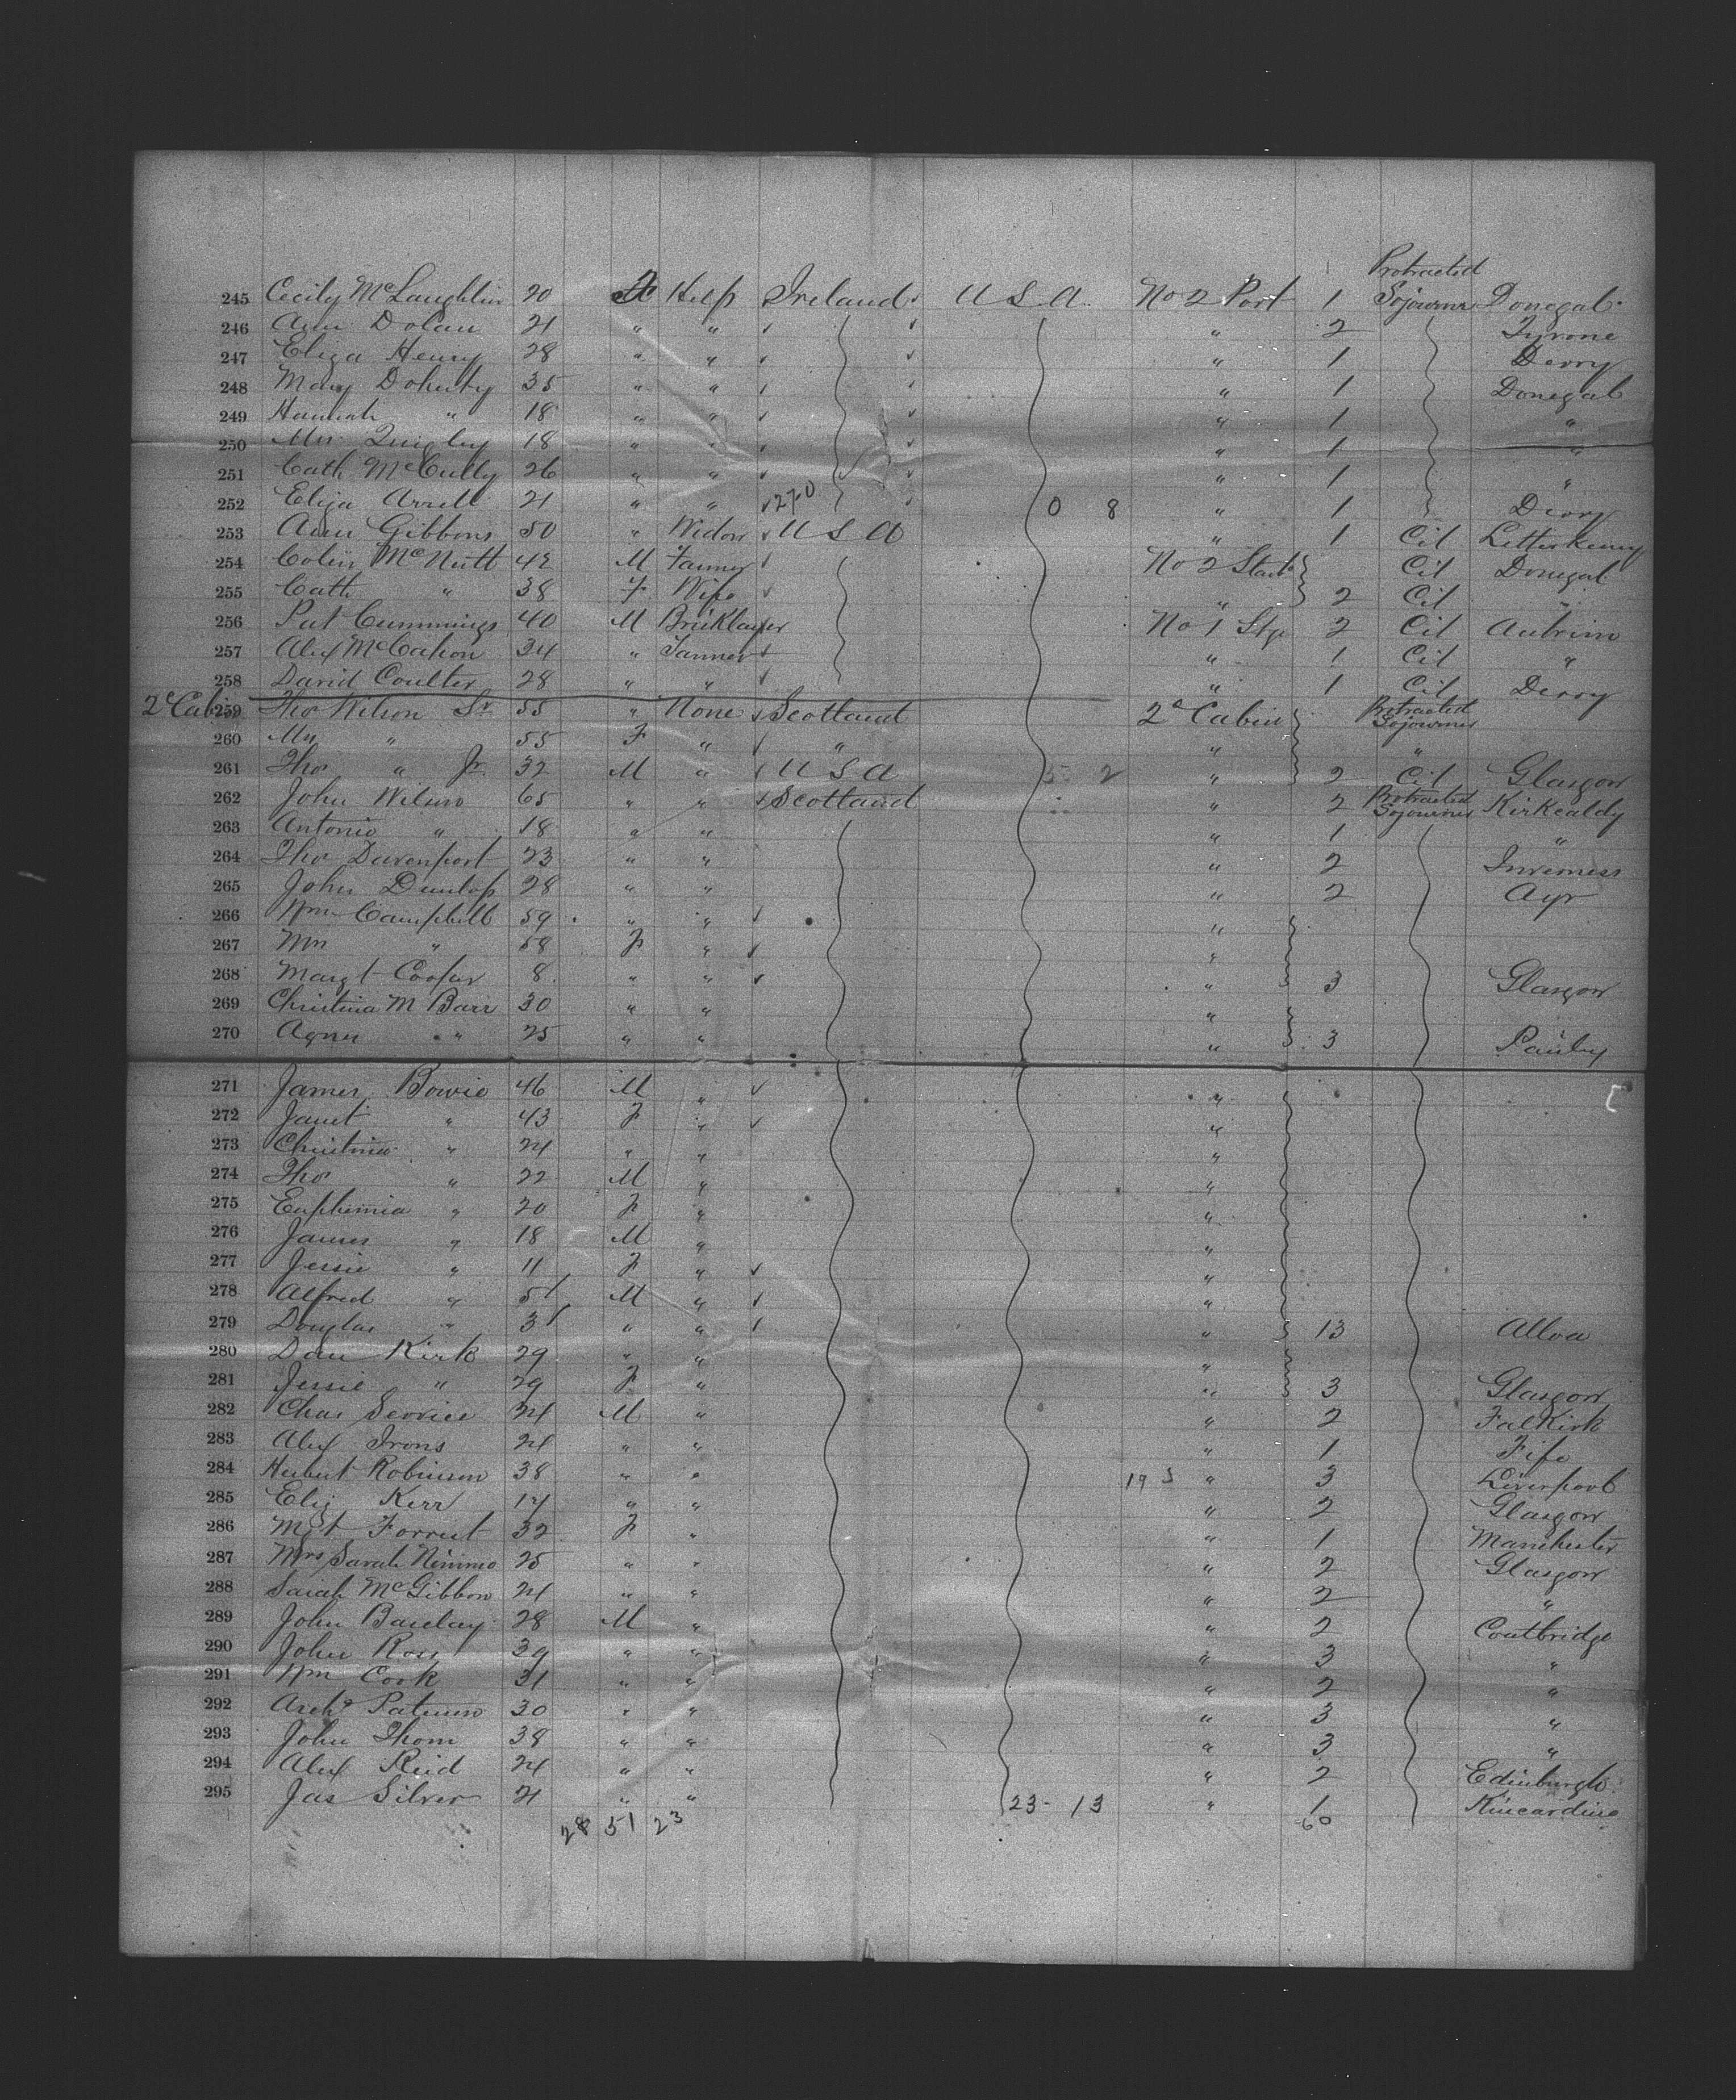 Protracted
245 Cecily McLaughlin 20 F Help Ireland U S A No 2 Port 1 Sojourner Donegal
246 Ann Dolan 21 " " " 2 Tyrone
247 Eliza Henry 28 " " " 1 Derry
248 Mary Doherty 35 " " " 1 Donegal
249 Hannah " 18 " " " 1 "
250 Mrs Quigley 18 " " " 1 "
251 Cath McCully 26 " " " 1 "
252 Eliza Arrell 21 " " 270 0 8 " 1 Derry
253 Ann Gibbons 50 " Widow U S A " 1 Cit Letterkenny
254 Colin McNutt 42 M Farmer No 2 Starb Cit Donegal
255 Cath " 38 F Wife " 2 Cit "
256 Pat Cummings 40 M Bricklayer No 1 Stg 2 Cit Antrim
257 Alex McCahon 34 " Farmer " 1 Cit "
258 David Coulter 28 " " " 1 Cit Derry
2d Cabin 259 Thos Wilson Sr 55 " None Scotland 2d Cabin Protracted Sojourner
260 Mrs " 55 F " " " "
261 Thos " Jr 32 M " U S A 2 " 2 Cit Glasgow
262 John Wilson 65 " " Scotland " 2 Protracted Sojourner Kirkcaldy
263 Antonio " 18 " " " 1 "
264 Thos Davenport 23 " " " 2 Inverness
265 John Dunlop 28 " " " 2 Ayr
266 Wm Campbell 59 " " "
267 Mrs " 58 F " "
268 Margt Cooper 8 " " " 3 Glasgow
269 Christina M Barr 30 " " "
270 Agnes " " 25 " " " 3 Paisley
271 James Bowie 46 M " "
272 Janet " 43 F " "
273 Christina " 24 " " "
274 Thos " 22 M " "
275 Euphemia " 20 F " "
276 James " 18 M " "
277 Jessie " 11 F " "
278 Alfred " 5 M " "
279 Douglas " 3 " " " 13 Alloa
280 Dan Kirk 29 " " "
281 Jessie " 29 F " " 3 Glasgow
282 Chas Service 24 M " " 2 Falkirk
283 Alex Irons 24 " " " 1 Fife
284 Hubert Robinson 38 " " 19 3 " 3 Liverpool
285 Eliz Kerr 14 " " " 2 Glasgow
286 Mgt Forrest 32 F " " 1 Manchester
287 Mrs Sarah Nimmo 25 " " " 2 Glasgow
288 Sarah McGibbon 24 " " " 2 "
289 John Barclay 28 M " " 2 Coatbridge
290 John Ross 39 " " " 3 "
291 Wm Cook 31 " " " 2 "
292 Archd Paterson 30 " " " 3 "
293 John Thom 38 " " " 3 "
294 Alex Reid 24 " " " 2 Edinburgh
295 Jas Silver 21 " " 23 - 13 " 1 Kincardine
28 51 23 60